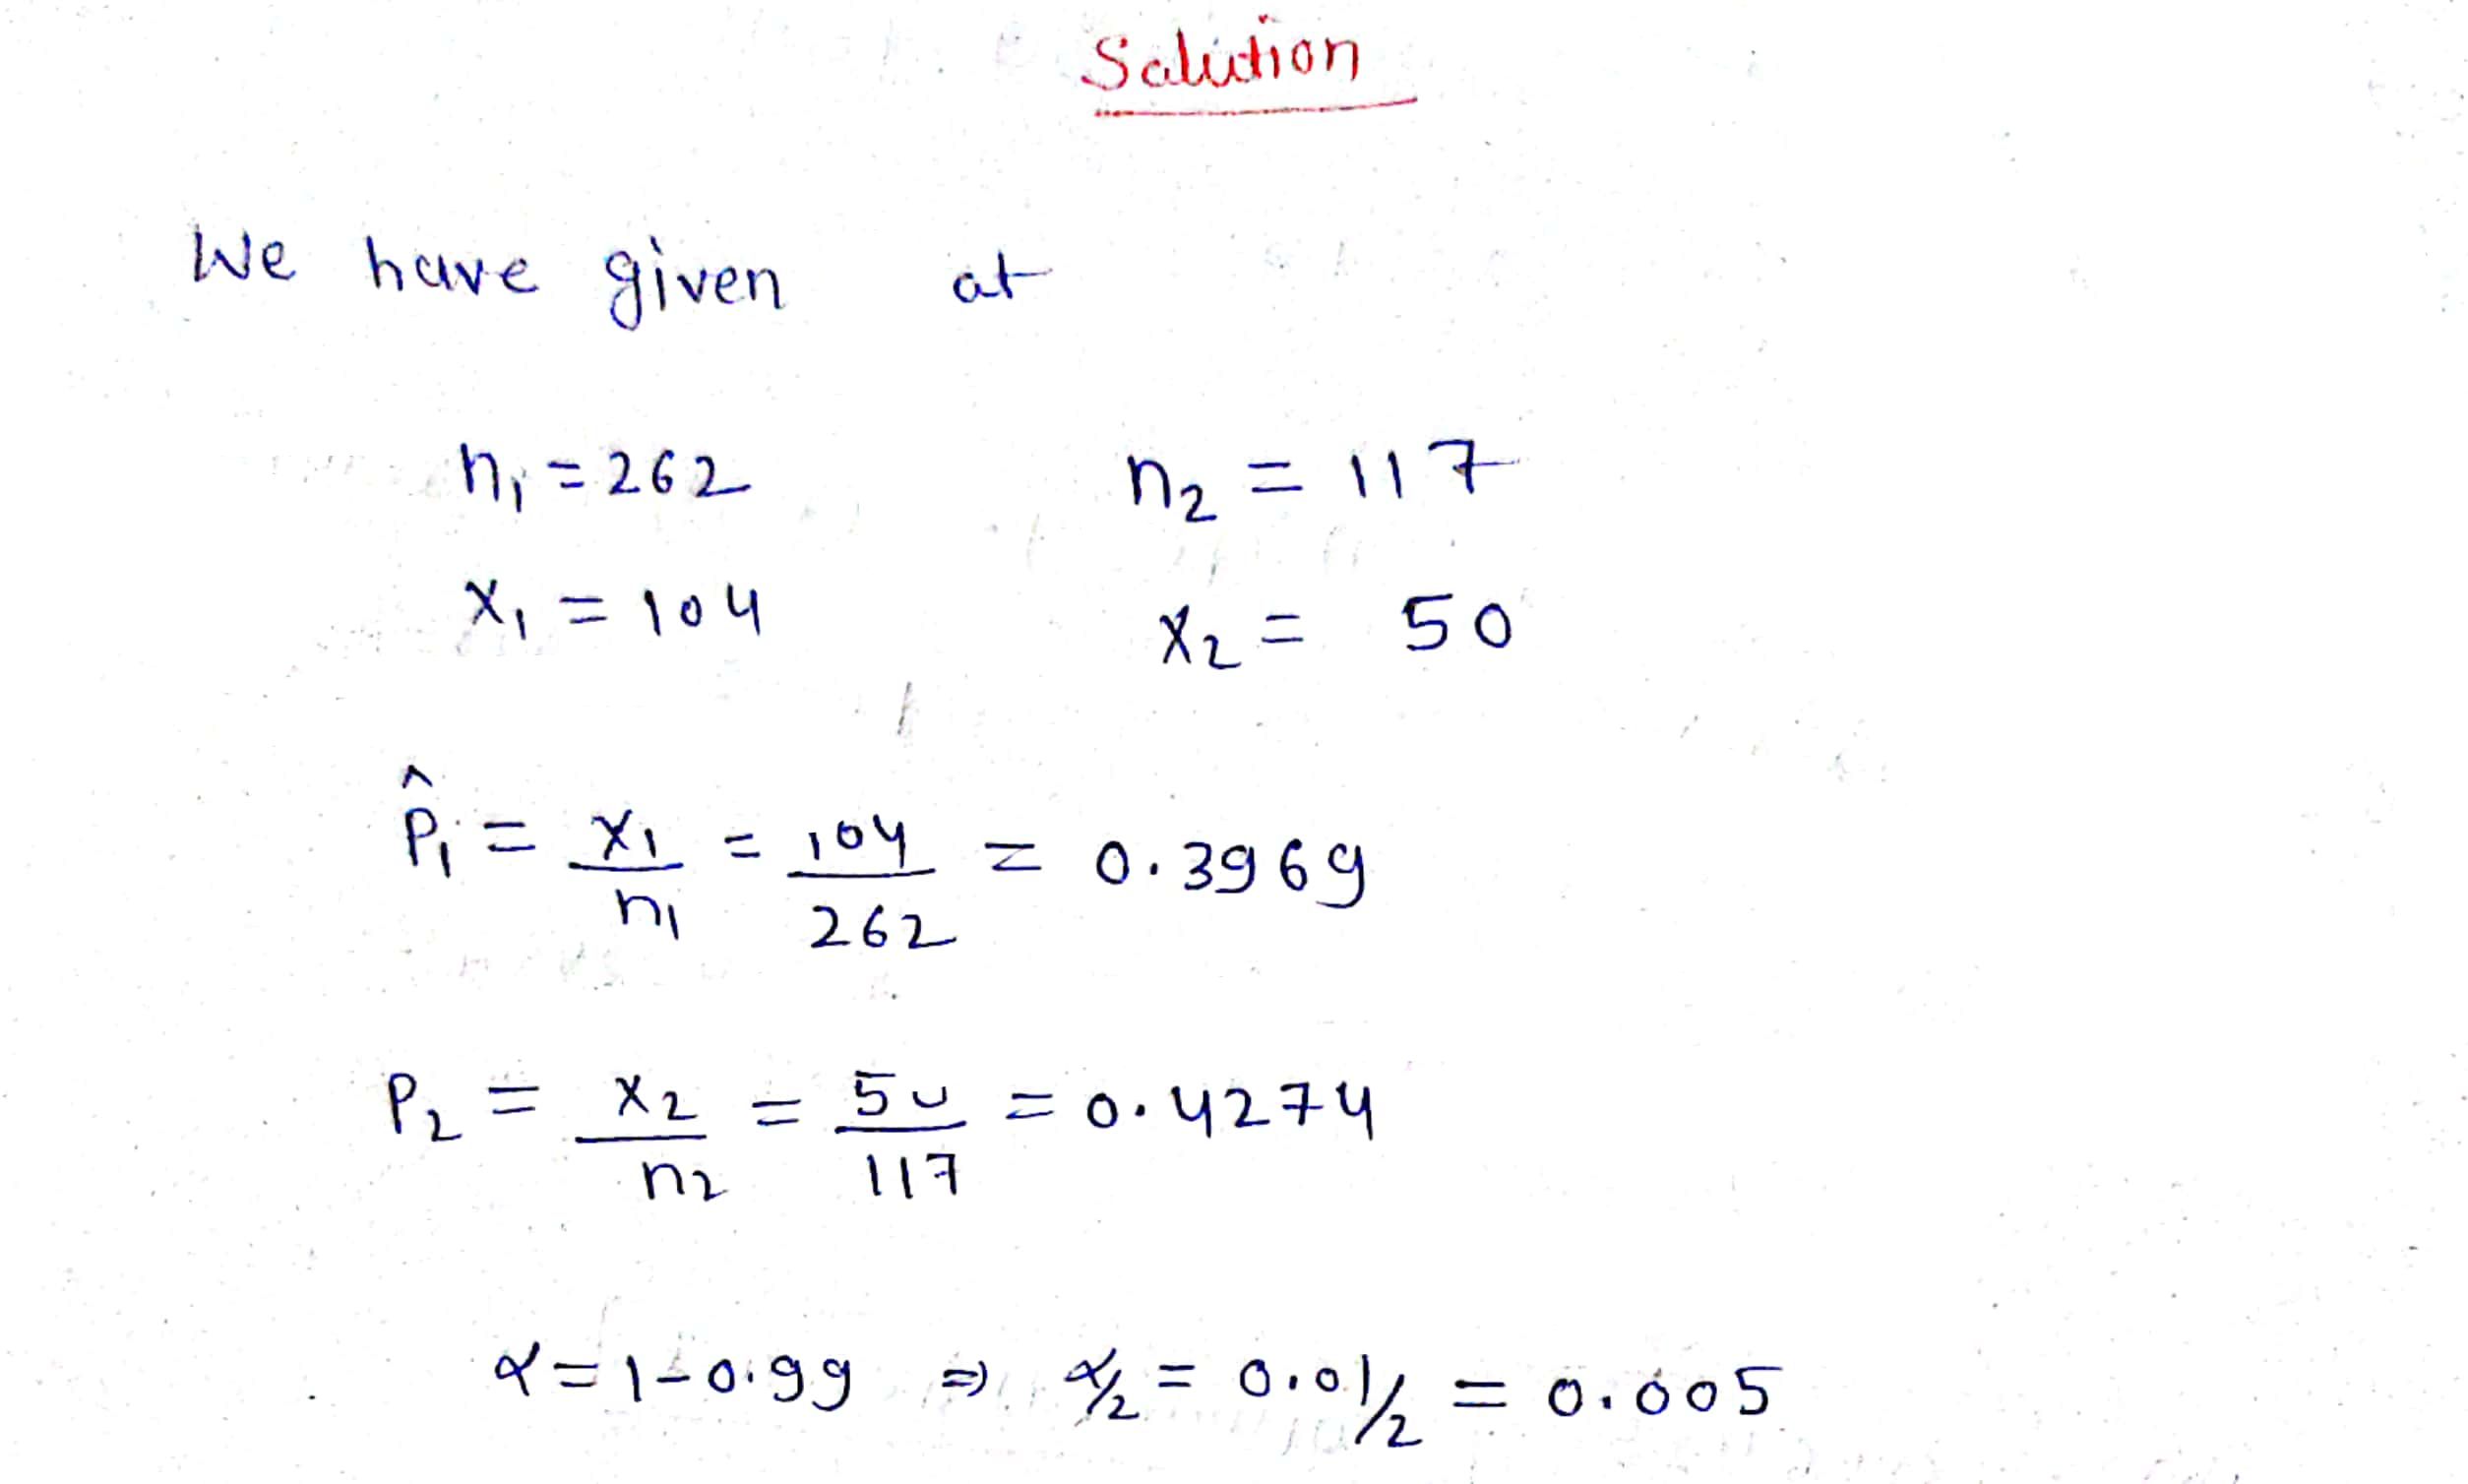 Solution
We have given at
n₁ = 262 n₂ = 117
x₁ = 104 x₂ = 50
p̂₁ = x₁/n₁ = 104/262 = 0.3969
p₂ = x₂/n₂ = 50/117 = 0.4274
α = 1 - 0.99 ⇒ α/2 = 0.01/2 = 0.005